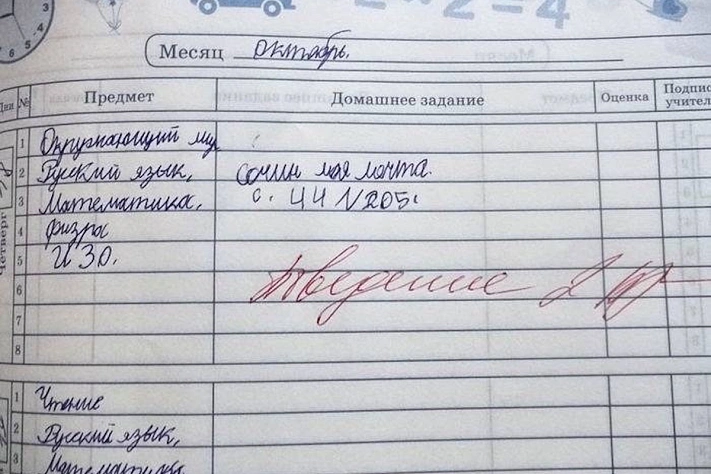 2 = 4
6 5 4 3
Месяц октябрь.
Дни № Предмет Домашнее задание Оценка Подпись учител
Четверг
1 Окружающий мир
2 Русский язык, сочин моя мечта.
3 Математика, с. 44 №205.
4 физра
5 ИЗО.
6 Поведение 2
7
8
1 Чтение
2 Русский язык,
3 Математика